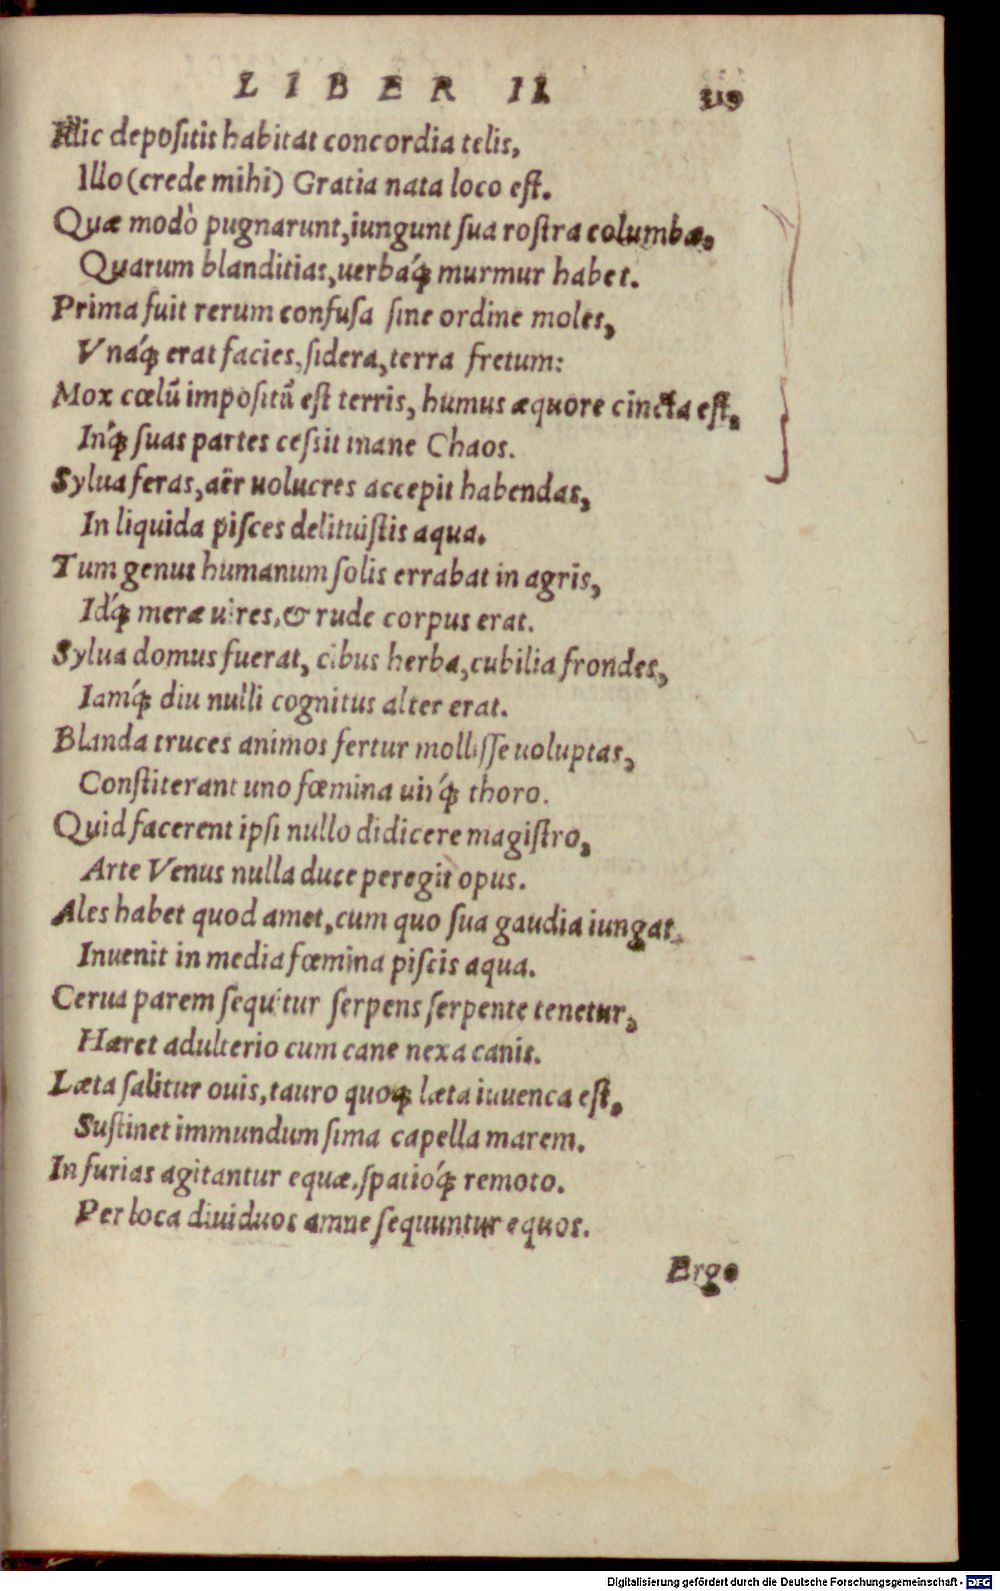 LIBER II. 319
Illic depositis habitat concordia telis,
Illo (crede mihi) Gratia nata loco est.
Quæ modò pugnarunt, iungunt sua rostra columbæ,
Quarum blanditias, uerbaq́; murmur habet.
Prima fuit rerum confusa sine ordine moles,
Vnaq́; erat facies, sidera, terra fretum:
Mox cœlũ impositũ est terris, humus æquore cincta est,
Inq́; suas partes cessit inane Chaos.
Sylua feras, aër uolucres accepit habendas,
In liquida pisces delituistis aqua.
Tum genus humanum solis errabat in agris,
Idq́; meræ uires, & rude corpus erat.
Sylua domus fuerat, cibus herba, cubilia frondes,
Iamq́; diu nulli cognitus alter erat.
Blanda truces animos fertur mollisse uoluptas,
Constiterant uno fœmina uirq́; thoro.
Quid facerent ipsi nullo didicere magistro,
Arte Venus nulla duce peregit opus.
Ales habet quod amet, cum quo sua gaudia iungat,
Inuenit in media fœmina piscis aqua.
Cerua parem sequitur serpens serpente tenetur,
Hæret adulterio cum cane nexa canis.
Læta salitur ouis, tauro quoq; læta iuuenca est,
Sustinet immundum sima capella marem.
In furias agitantur equæ, spatioq́; remoto.
Per loca diuiduos amne sequuntur equos.
Ergo
Digitalisierung gefördert durch die Deutsche Forschungsgemeinschaft - DFG